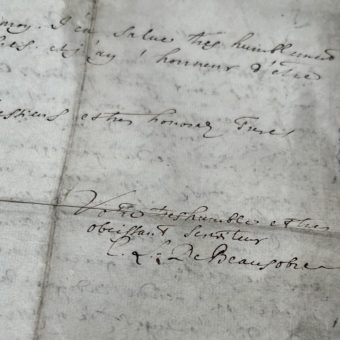 moy. J'en salue très humblement
j'ay l'honneur d'être
et très honorez Freres
Votre très humble et très
obeissant serviteur
C. L. De Beausobre